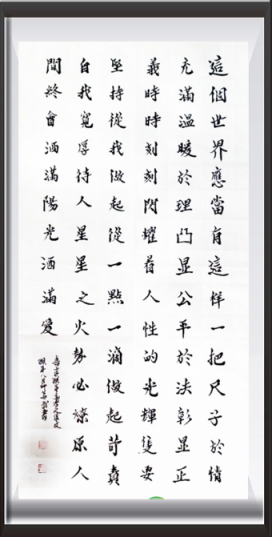 這個世界應當有這樣一把尺子於情
充滿溫暖於理凸显公平於法彰显正
義時時刻刻閃耀着人性的光輝隻要
堅持從我做起從一點一滴做起苛責
自我寬厚待人星星之火势必燎原人
間終會洒滿陽光洒滿愛